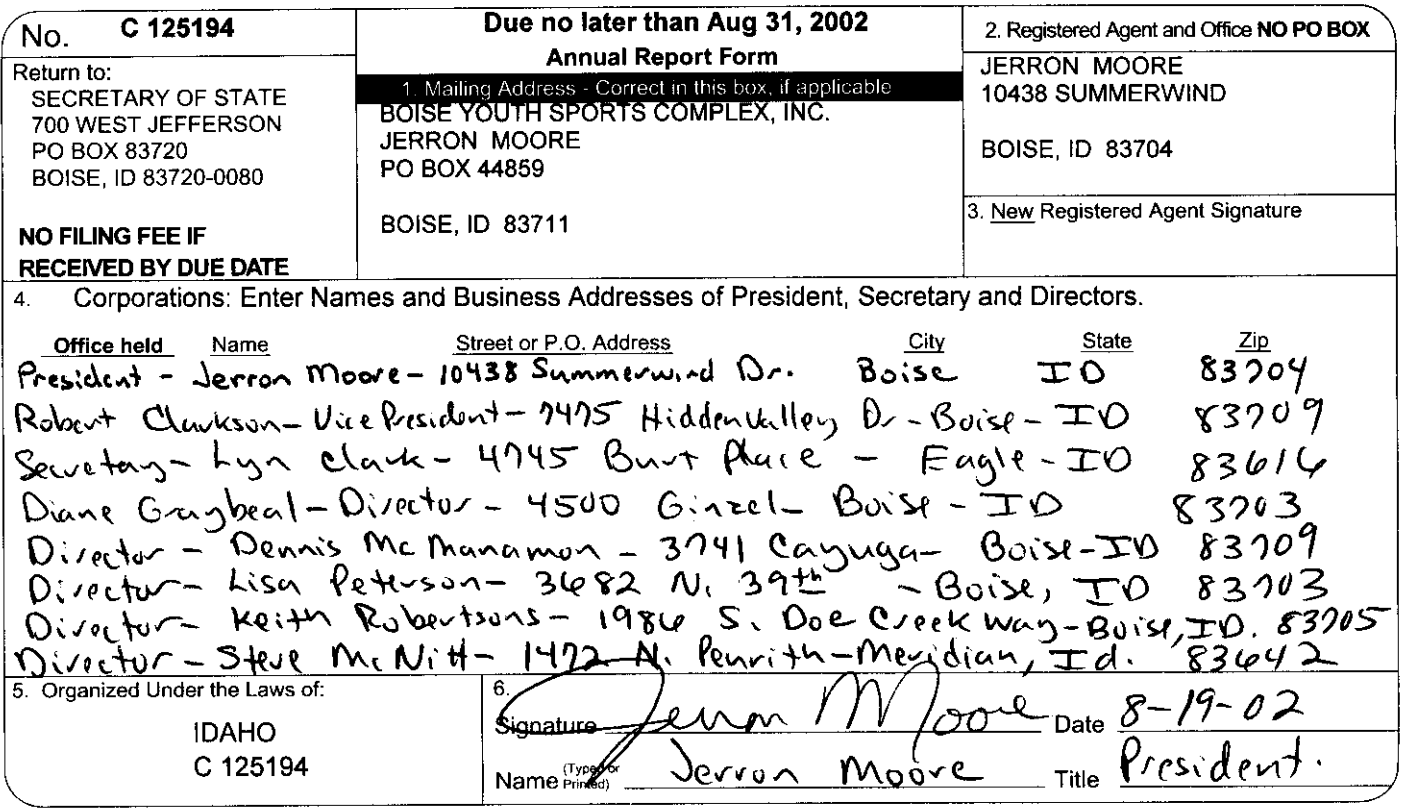 No. C 125194
Return to:
SECRETARY OF STATE
700 WEST JEFFERSON
PO BOX 83720
BOISE, ID 83720-0080
NO FILING FEE IF
RECEIVED BY DUE DATE
Due no later than Aug 31, 2002
Annual Report Form
1. Mailing Address - Correct in this box, if applicable
BOISE YOUTH SPORTS COMPLEX, INC.
JERRON MOORE
PO BOX 44859
BOISE, ID 83711
2. Registered Agent and Office NO PO BOX
JERRON MOORE
10438 SUMMERWIND
BOISE, ID 83704
3. New Registered Agent Signature
4. Corporations: Enter Names and Business Addresses of President, Secretary and Directors.
Office held Name Street or P.O. Address City State Zip
President - Jerron Moore - 10438 Summerwind Dr. Boise ID 83704
Robert Clarkson - Vice President - 7475 Hidden Valley Dr - Boise - ID 83709
Secretary - Lyn Clark - 4745 Burt Place - Eagle - ID 83616
Diane Graybeal - Director - 4500 Ginzel - Boise - ID 83703
Director - Dennis McManamon - 3741 Cayuga - Boise - ID 83709
Director - Lisa Peterson - 3682 N. 39th - Boise, ID 83703
Director - Keith Robertsons - 1986 S. Doe Creek Way - Boise, ID. 83705
Director - Steve McNitt - 1472 N. Penrith - Meridian, Id. 83642
5. Organized Under the Laws of:
IDAHO
C 125194
6.
Signature Jerron Moore Date 8-19-02
Name (Typed or Printed) Jerron Moore Title President.